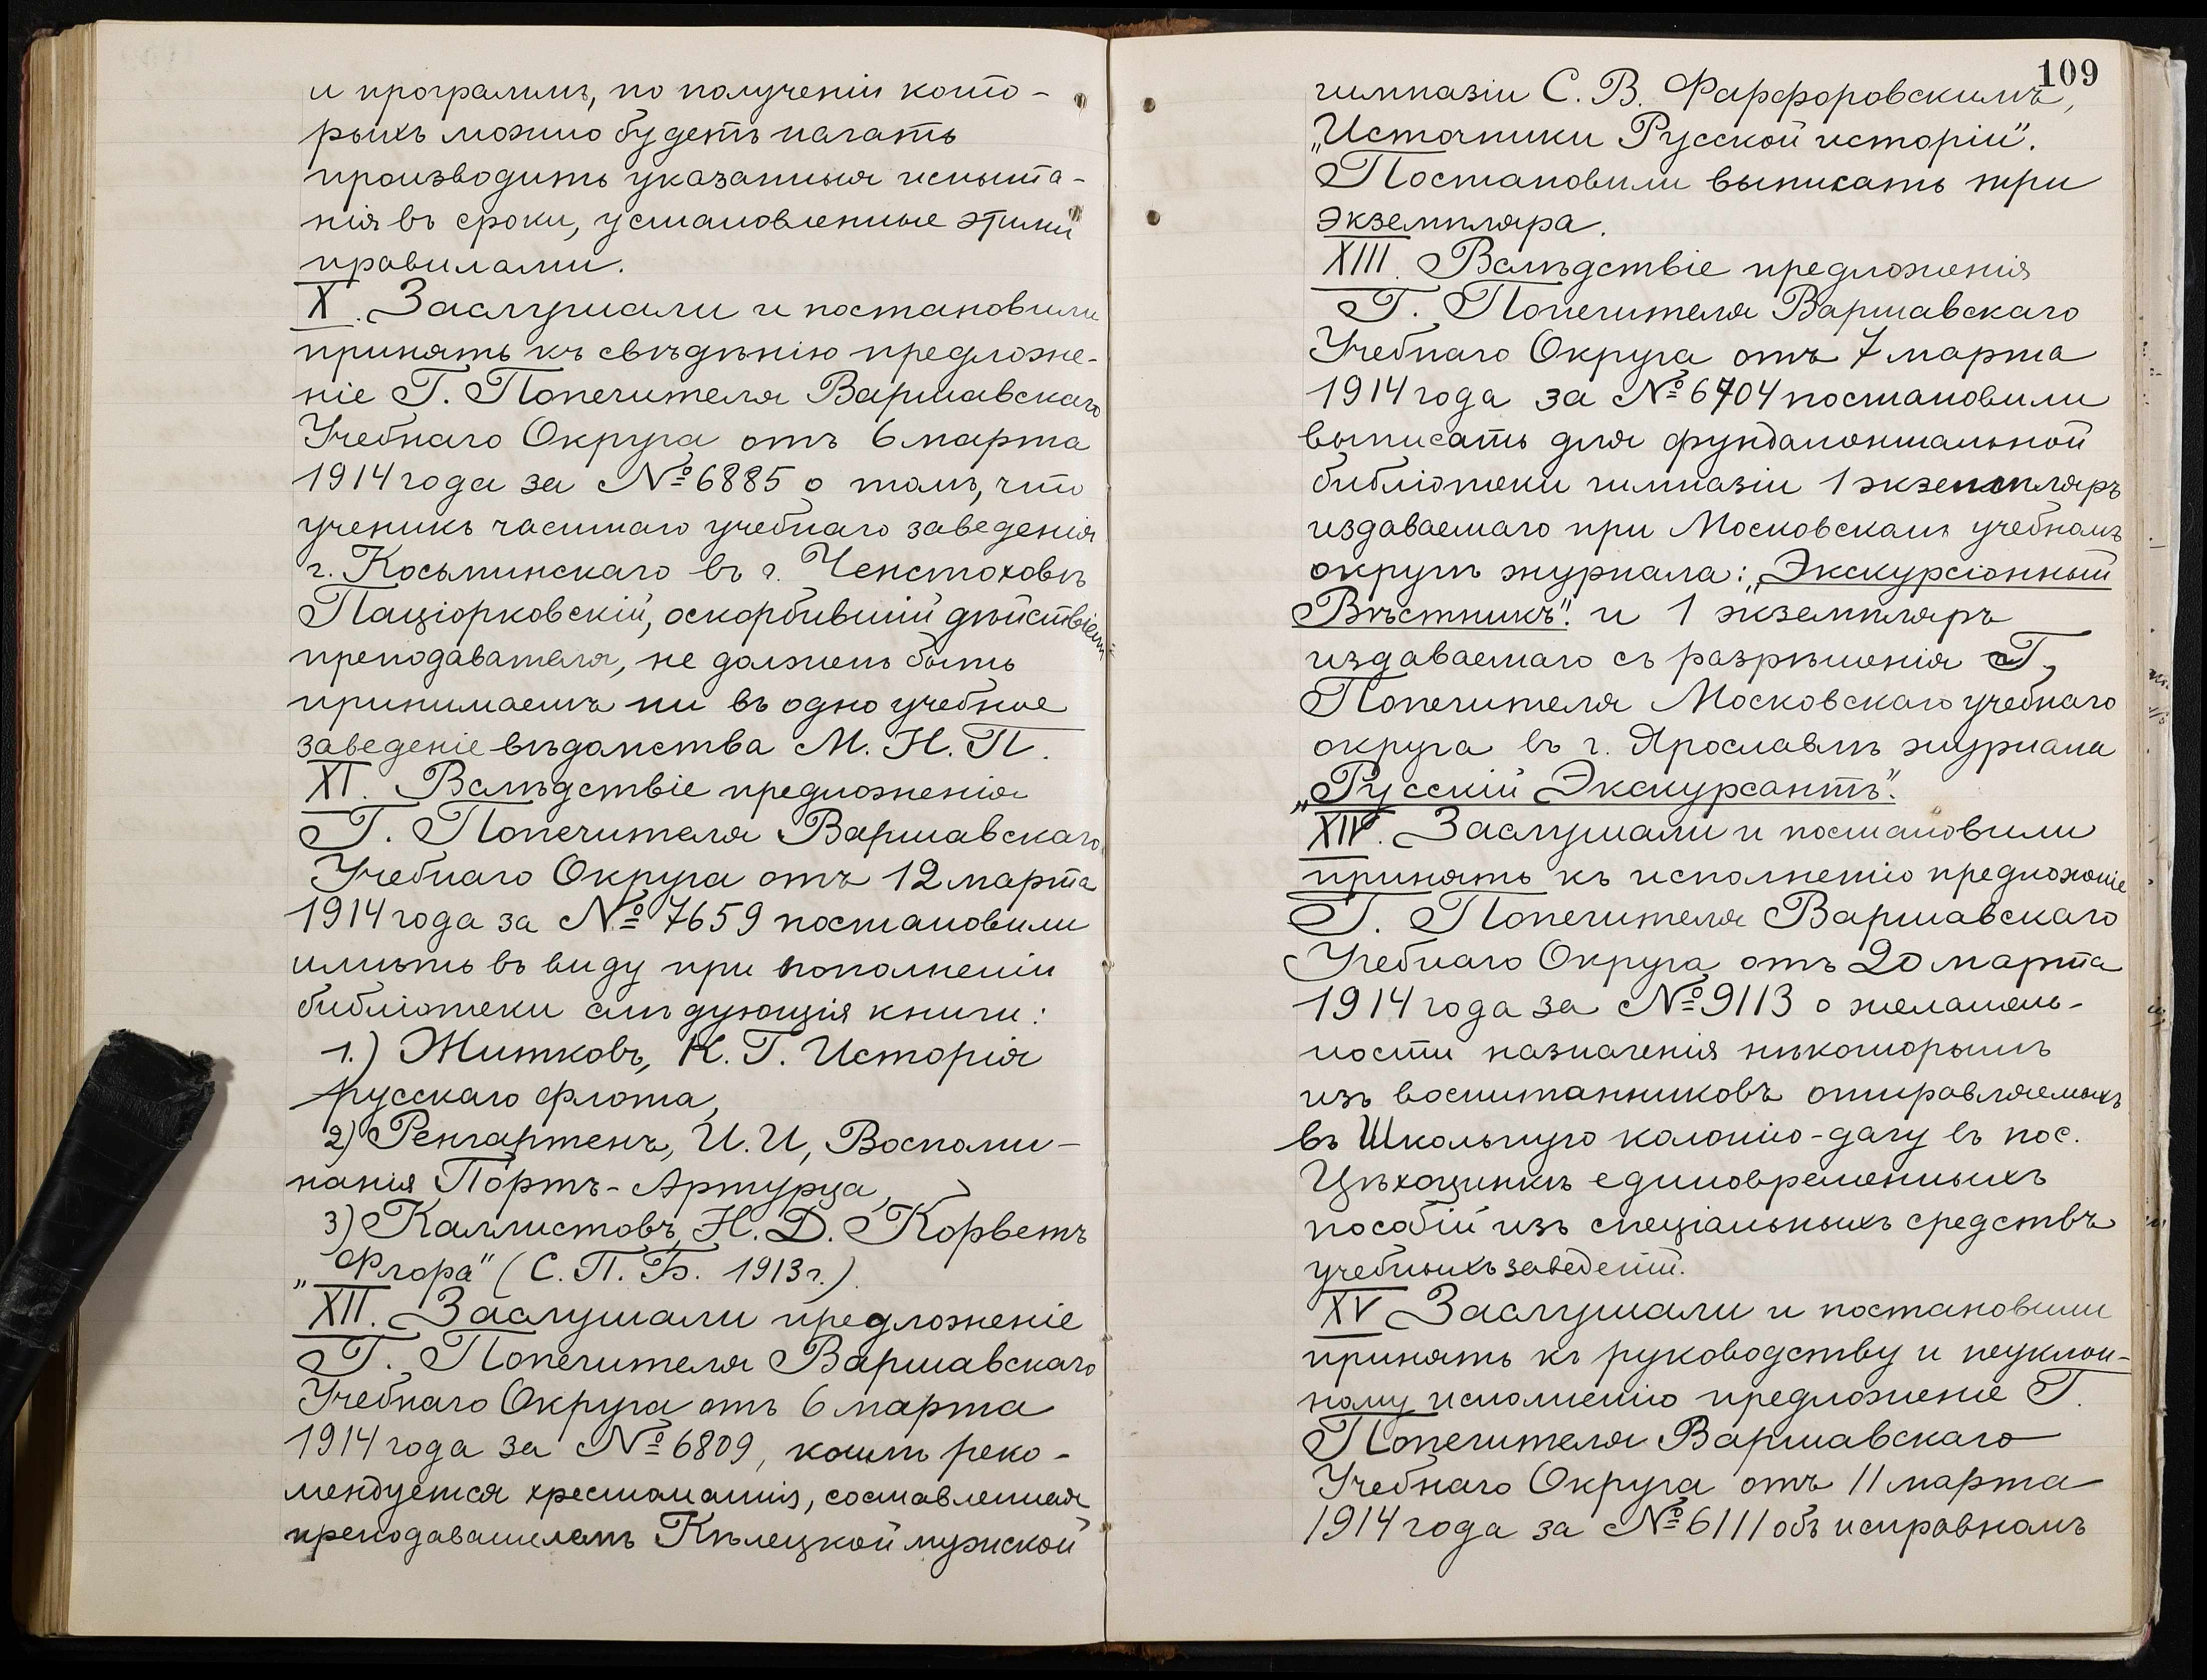 и программъ, по полученіи кото-
рыхъ можно будетъ начать
производить указанныя испыта-
нія въ сроки, установленные этими
правилами.
X. Заслушали и постановили
принять къ свѣдѣнію предложе-
ніе Г. Попечителя Варшавскаго
Учебнаго Округа отъ 6 марта
1914 года за № 6885 о томъ, что
ученикъ частнаго учебнаго заведенія
г. Косьминскаго въ г. Ченстоховѣ
Паціорковскій, оскорбившій дѣйствіемъ
преподавателя, не долженъ быть
принимаемъ ни въ одно учебное
заведеніе вѣдомства М. Н. П.
XI. Вслѣдствіе предложенія
Г. Попечителя Варшавскаго
Учебнаго Округа отъ 12 марта
1914 года за № 7659 постановили
имѣть въ виду при пополненіи
библіотеки слѣдующія книги:
1.) Житковъ, К. Г. Исторія
русскаго флота,
2) Ренгартенъ, И. И, Воспоми-
нанія Портъ-Артурца,
3) Каллистовъ, Н. Д. Корветъ
„Флора" (С. П. Б. 1913 г.).
XII. Заслушали предложеніе
Г. Попечителя Варшавскаго
Учебнаго Округа отъ 6 марта
1914 года за № 6809, коимъ реко-
мендуется хрестоматія, составленная
преподавателемъ Кѣлецкой мужской
109
гимназіи С. В. Фарфоровскимъ,
„Источники Русской исторіи".
Постановили выписать три
экземпляра.
XIII. Вслѣдствіе предложенія
Г. Попечителя Варшавскаго
Учебнаго Округа отъ 7 марта
1914 года за № 6704 постановили
выписать для фундаментальной
библіотеки гимназіи 1 экземпляръ
издаваемаго при Московскомъ учебномъ
округѣ журнала: „Экскурсіонный
Вѣстникъ". и 1 экземпляръ
издаваемаго съ разрѣшенія Г,
Попечителя Московскаго учебнаго
округа въ г. Ярославлѣ журнала
„Русскій Экскурсантъ".
XIV. Заслушали и постановили
принять къ исполненію предложеніе
Г. Попечителя Варшавскаго
Учебнаго Округа отъ 20 марта
1914 года за № 9113 о желатель-
ности назначенія нѣкоторымъ
изъ воспитанниковъ отправляемыхъ
въ Школьную колонію-дачу въ пос.
Цѣхоцинкѣ единовременныхъ
пособій изъ спеціальныхъ средствъ
учебныхъ заведеній.
XV Заслушали и постановили
принять къ руководству и неуклон-
ному исполненію предложеніе Г.
Попечителя Варшавскаго
Учебнаго Округа отъ 11 марта
1914 года за № 6111 объ исправномъ